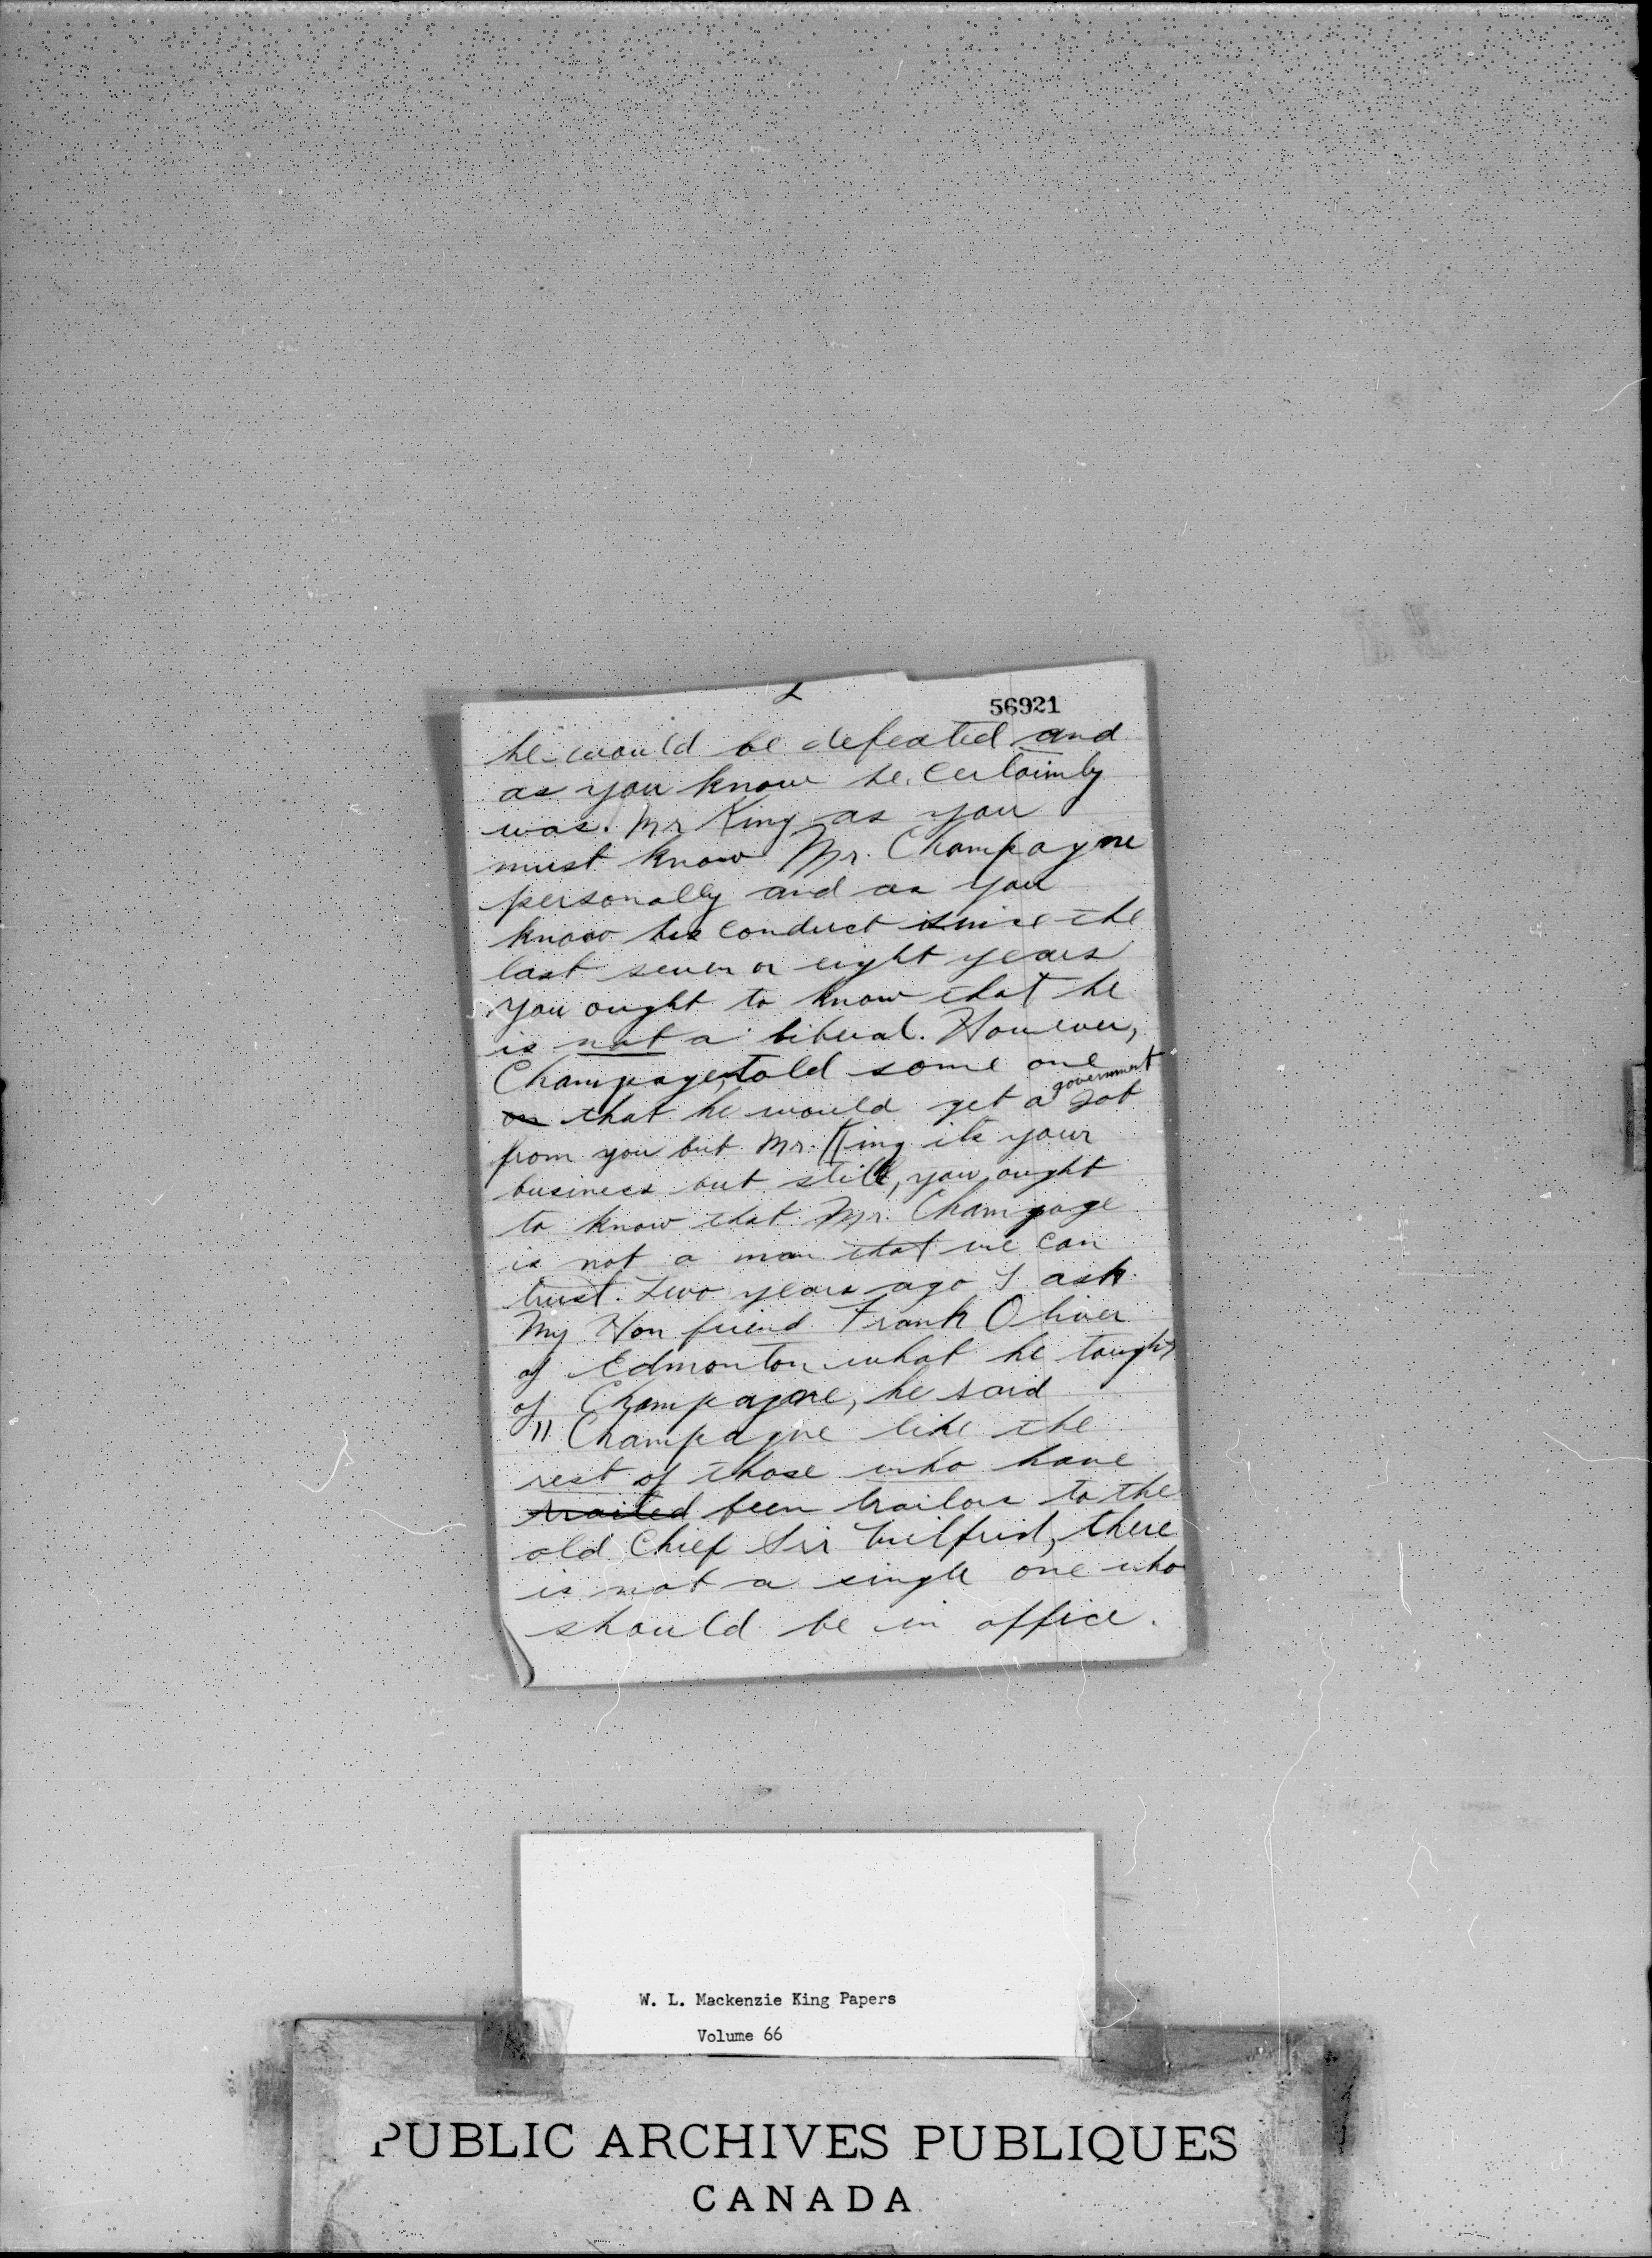 2
56921
he would be defeated and
as you know he certainly
was. Mr King as you
must know Mr. Champagne
personally and as you
know his conduct since the
last seven or eight years
you ought to know that he
is not a liberal. However,
Champage, told some one
on that he would get a government Job
from you but Mr. King its your
business but still, you ought
to know that Mr. Champage
is not a man that we can
trust. Two years ago I ask
My Hon friend Frank Oliver
of Edmonton what he tought
of Champagne, he said
"Champagne like the
rest of those who have
traited been traitors to the
old Chief Sir Wilfrid, there
is not a single one who
should be in office.
W. L. Mackenzie King Papers
Volume 66
PUBLIC ARCHIVES PUBLIQUES
CANADA